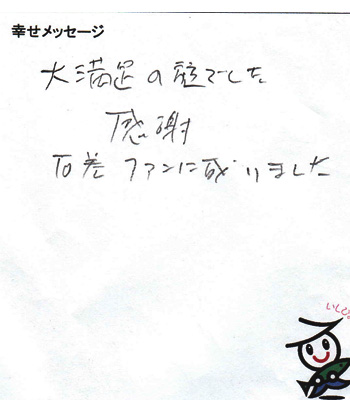 幸せメッセージ
大満足の旅でした
感謝
石巻ファンに成りました